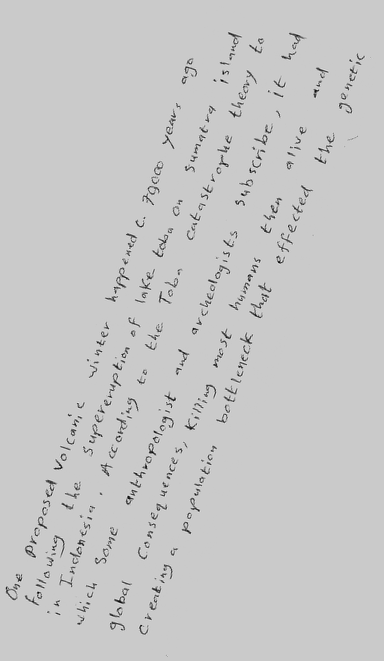 One proposed volcanic winter happened c. 70000 years ago
following the supereruption of lake toba on sumatra island
in Indonesia. According to the Toba catastrophe theory to
which some anthropologist and archeologists subscribe, it had
global consequences, killing most humans then alive and
creating a population bottleneck that effected the genetic